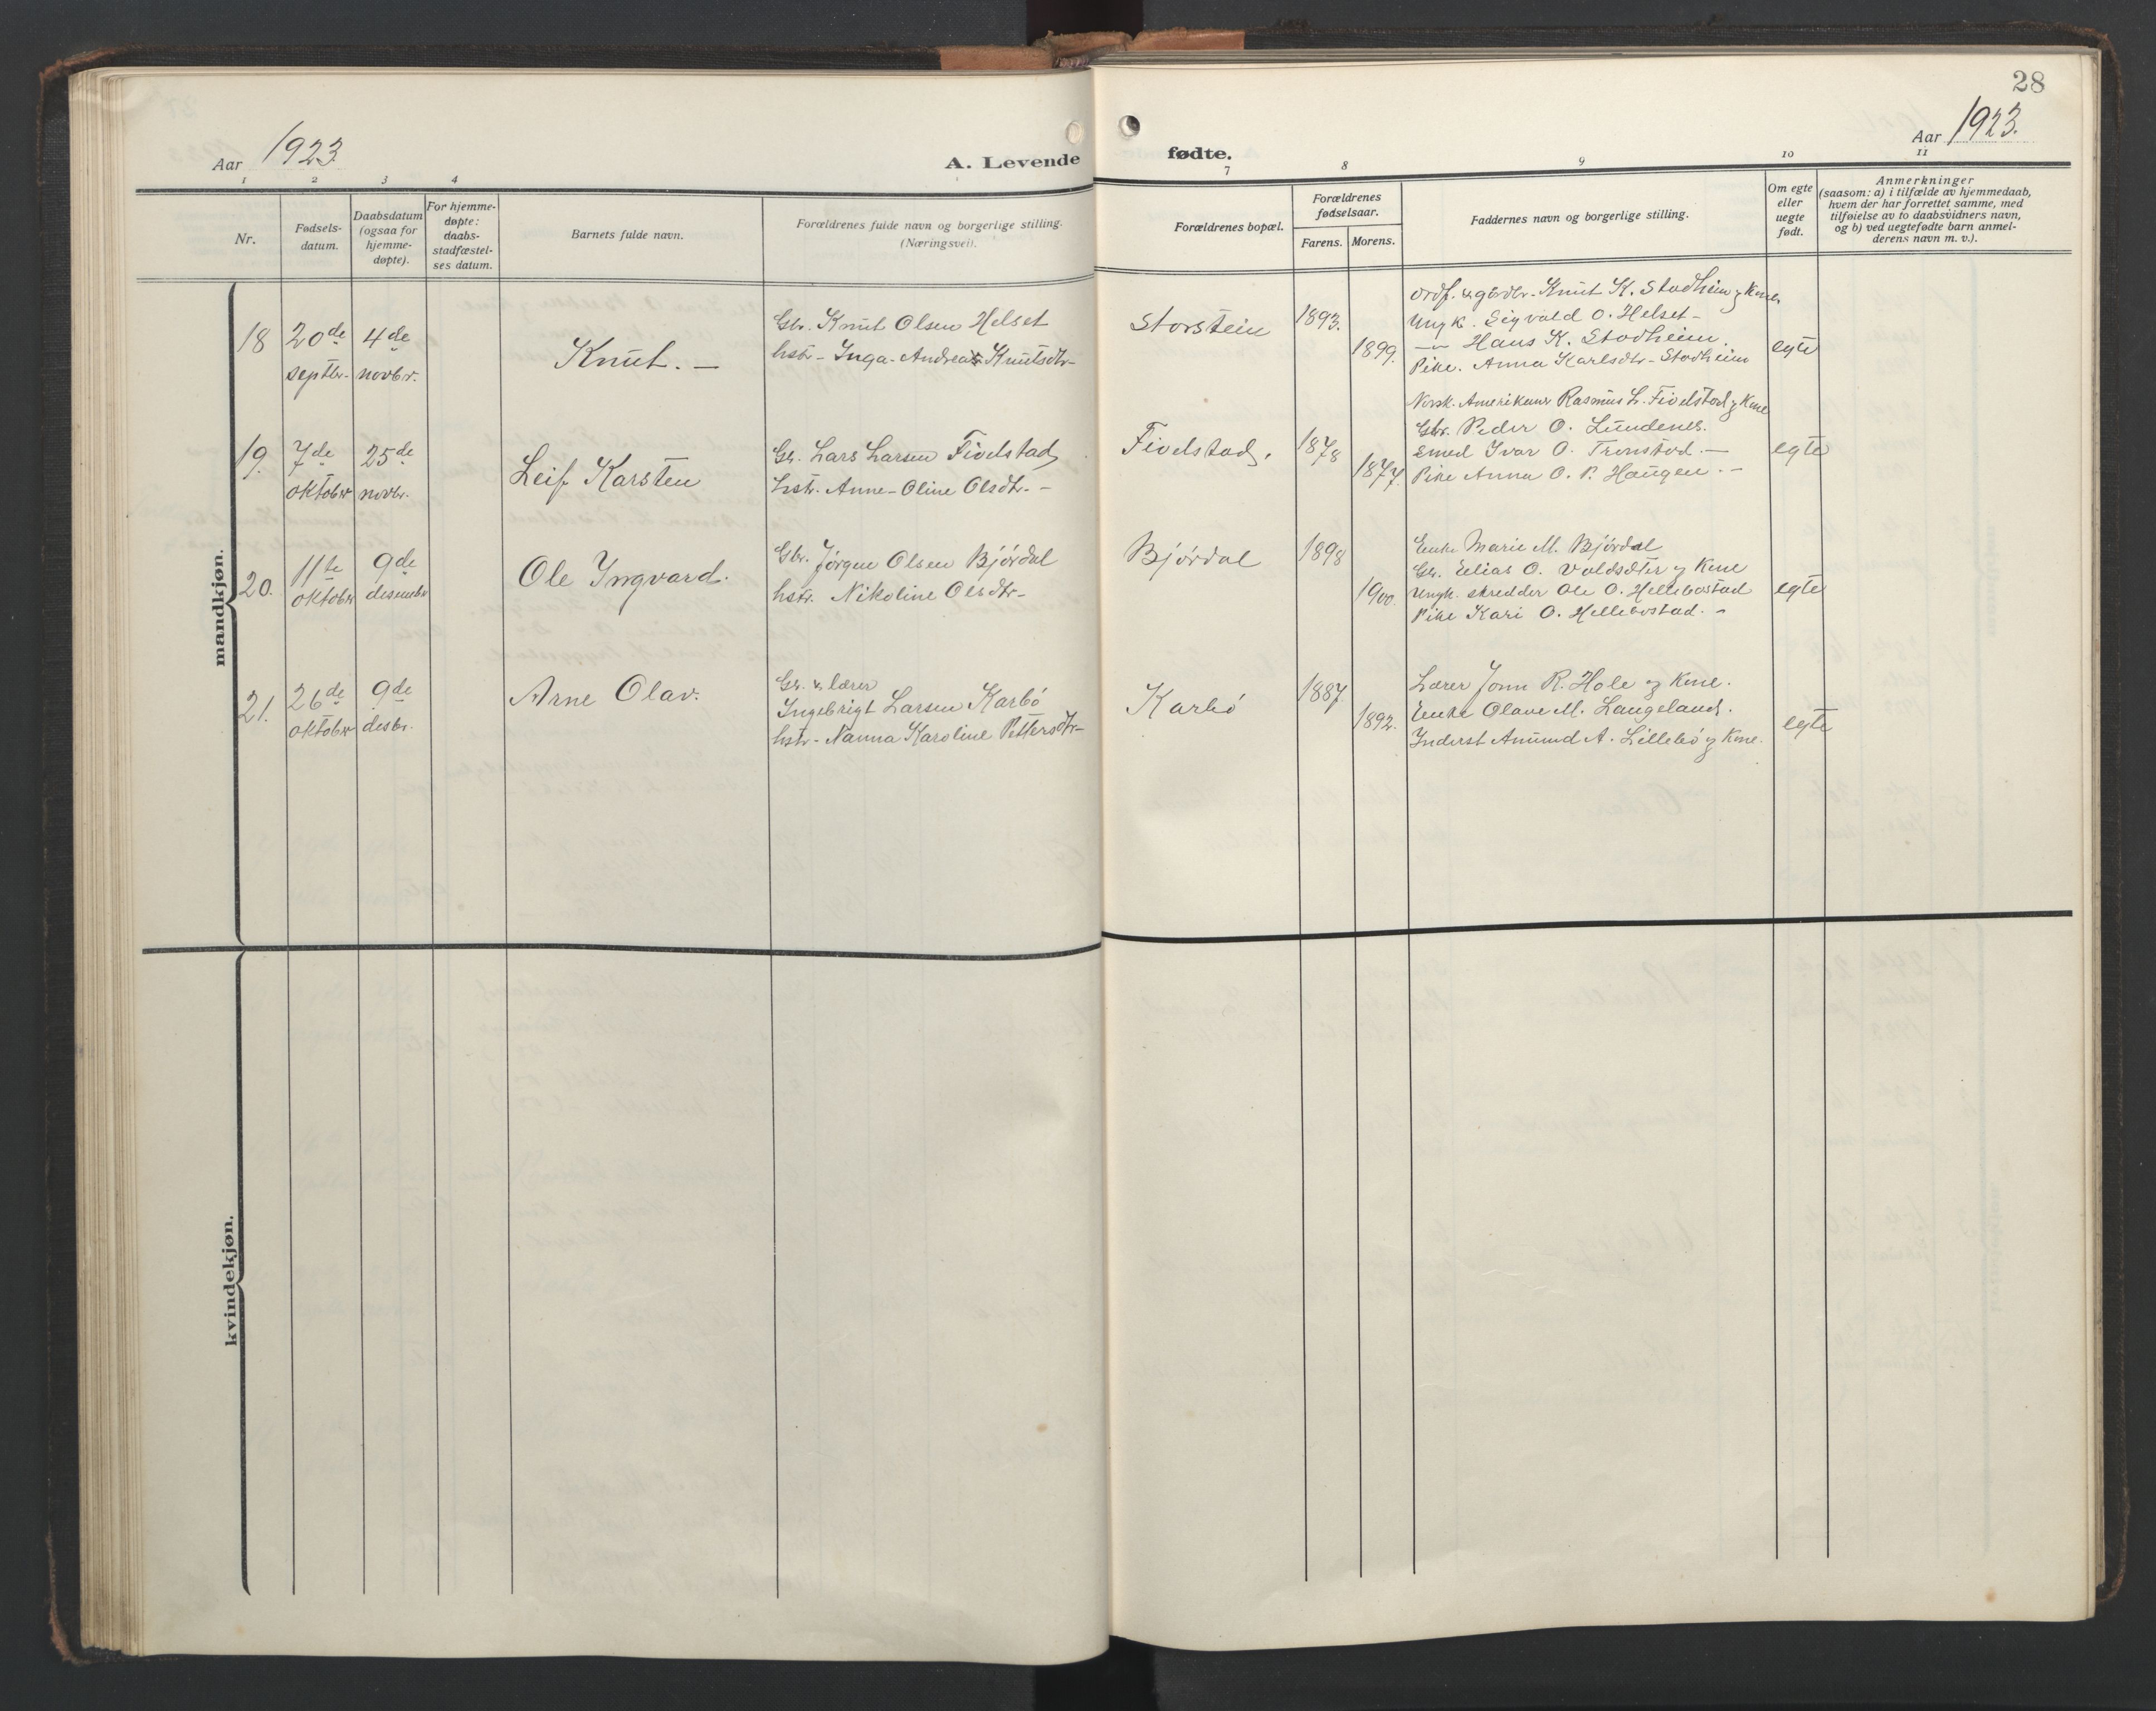 28
Aar 1923
A. Levende fødte.
Aar 1923.
1 2 3 4 7 8 9 10 11
Nr.
Fødsels-
datum.
Daabsdatum
(ogsaa for
hjemme-
døpte).
For hjemme-
døpte:
daabs-
stadfæstel-
ses datum.
Barnets fulde navn.
Forældrenes fulde navn og borgerlige stilling.
(Næringsvei).
Forældrenes bopæl.
Forældrenes
fødselsaar.
Farens. Morens.
Faddernes navn og borgerlige stilling.
Om egte
eller
uegte
født.
Anmerkninger
(saasom: a) i tilfælde av hjemmedaab,
hvem der har forrettet samme, med
tilføielse av to daabsvidners navn,
og b) ved uegtefødte barn anmel-
derens navn m. v.).
mandkjøn.
18 20de septbr. 4de novbr.
Knut. –
Gbr. Knut Olsen Helset
hstr. Inga-Andrea Knutsdtr-
Storstein
1893.
1899.
Ordf. & gårdbr. Knut K. Stadheim & Kone
Ungk. Sigvald O. Helset-
–"– Hans K. Stadheim.
Pike. Anna Karlsdtr-Stadheim
egte
19. 7de oktober 25de novbr.
Leif Karsten
Gbr. Lars Larsen Fivelstad
hstr. Anne-Oline Olsdtr. –
Fivelstad.
1878
1877.
Norsk-Amerikaner Rasmus L. Fivelstad & Kone
Gbr. Peder O. Lundenes.
Smed Ivar O. Tronstad. –
Pike Anna O. P. Haugen. –
egte
20. 11te oktober 9de desember
Ole Ingvard.
Gbr. Jørgen Olsen Bjørdal
hstr. Nikoline Olsdtr-
Bjørdal
1898
1900.
Enke Marie M. Bjørdal
Gbr. Elias O. Voldsæter & Kone
Ungk. skredder Ole O. Hellebostad
Pike Kari O. Hellebostad. –
egte
21. 26de oktober 9de desbr.
Arne Olav.
Gbr. & lærer
Ingebrigt Larsen Karbø
hstr- Nanna Karoline Pettersdtr-
Karbø
1887.
1892.
Lærer Jonn R. Hole & Kone.
Enke Olave M. Langeland.
Inderst Amund A. Lillebø & Kone.
egte
kvindekjøn.